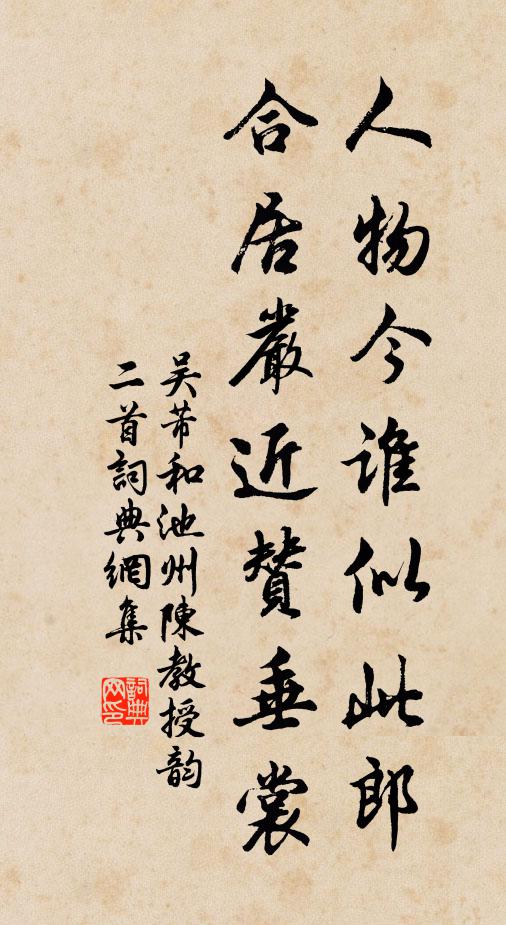 人物今誰似此郎
合居嚴近賛垂裳
吴芾和池州陳教授韵
二首詞典網集
詞典網印